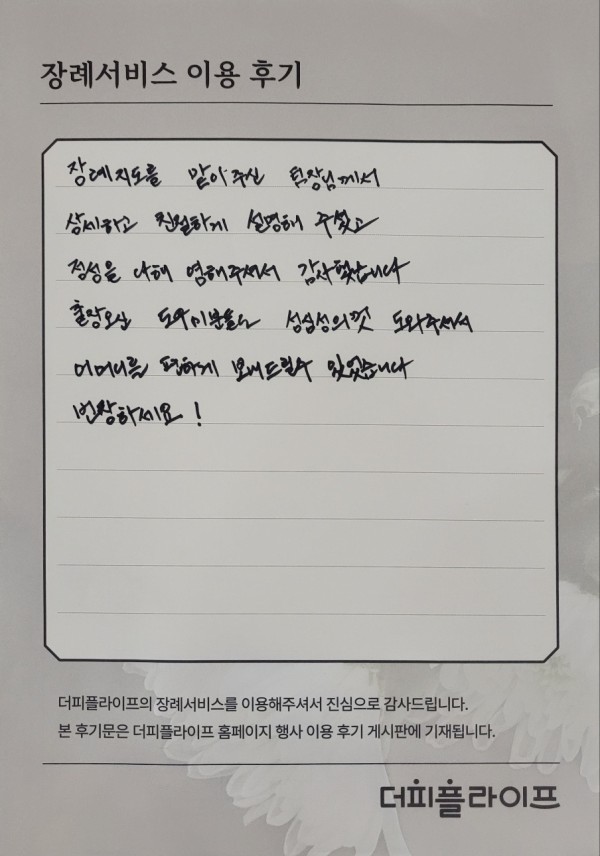 장례서비스 이용 후기
장례지도를 맡아주신 팀장님께서
상세하고 친절하게 설명해 주셨고
정성을 다해 염해주셔서 감사했습니다
출장오신 도우미분들도 성심성의껏 도와주셔서
어머니를 편하게 보내드릴수 있었습니다
번창하세요!
더피플라이프의 장례서비스를 이용해주셔서 진심으로 감사드립니다.
본 후기문은 더피플라이프 홈페이지 행사 이용 후기 게시판에 기재됩니다.
더피플라이프